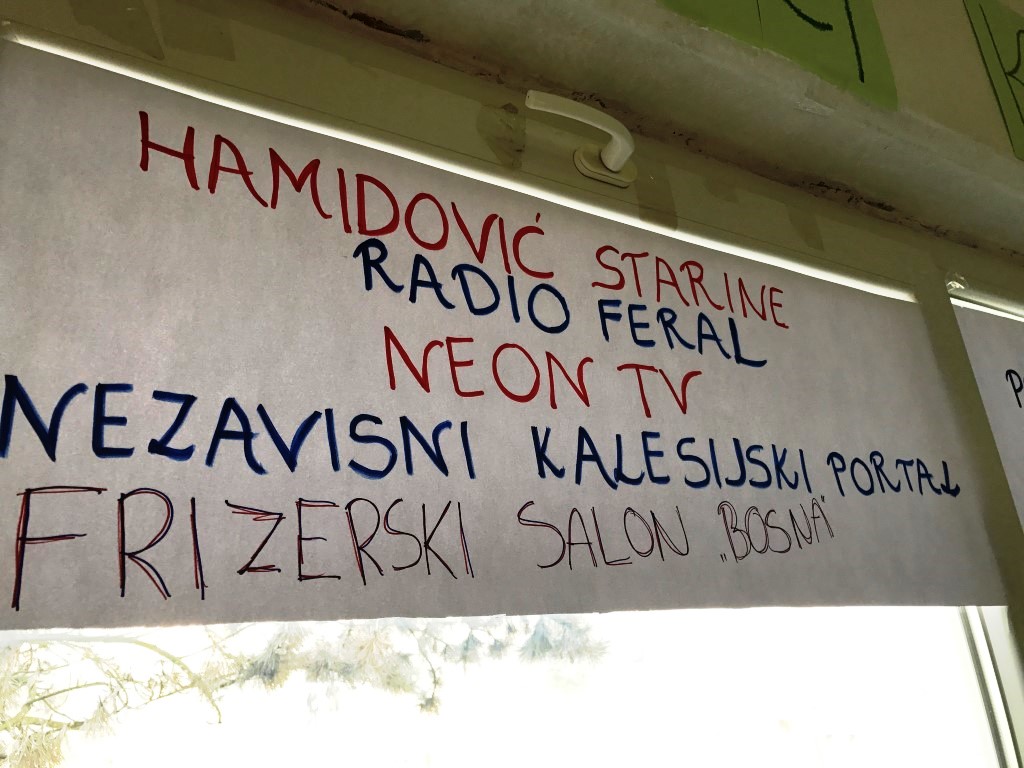 HAMIDOVIĆ STARINE
RADIO FERAL
NEON TV
NEZAVISNI KALESIJSKI PORTAL
FRIZERSKI SALON „BOSNA"